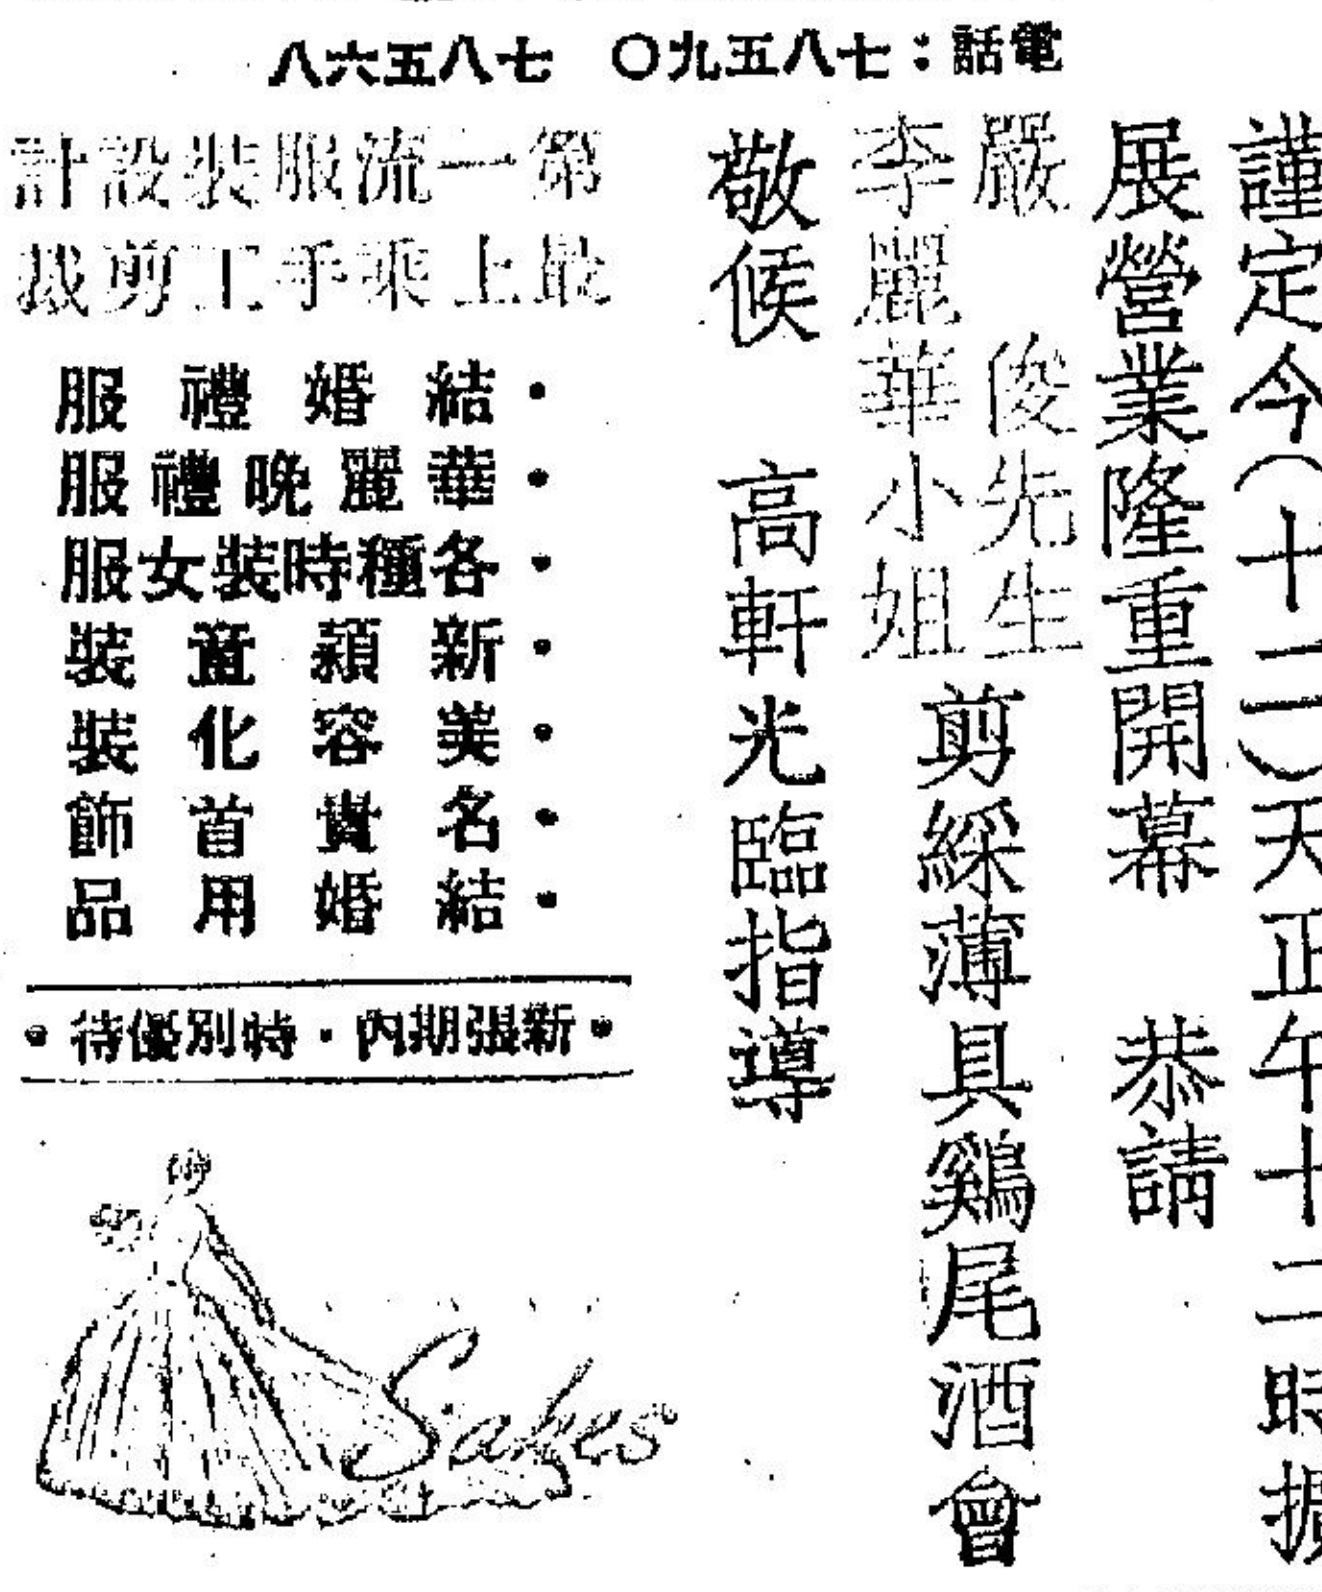 電話：七八五九〇　七八五六八
謹定今（十二）天正午十二時擴
展營業隆重開幕　恭請
嚴　俊先生
李麗華小姐
剪綵薄具鷄尾酒會
敬候　高軒光臨指導
第一流服裝設計
最上乘手工剪裁
・結婚禮服
・華麗晚禮服
・各種時裝女服
・新穎童裝
・美容化裝
・名貴首飾
・結婚用品
・新張期內・特別優待・
Sakes